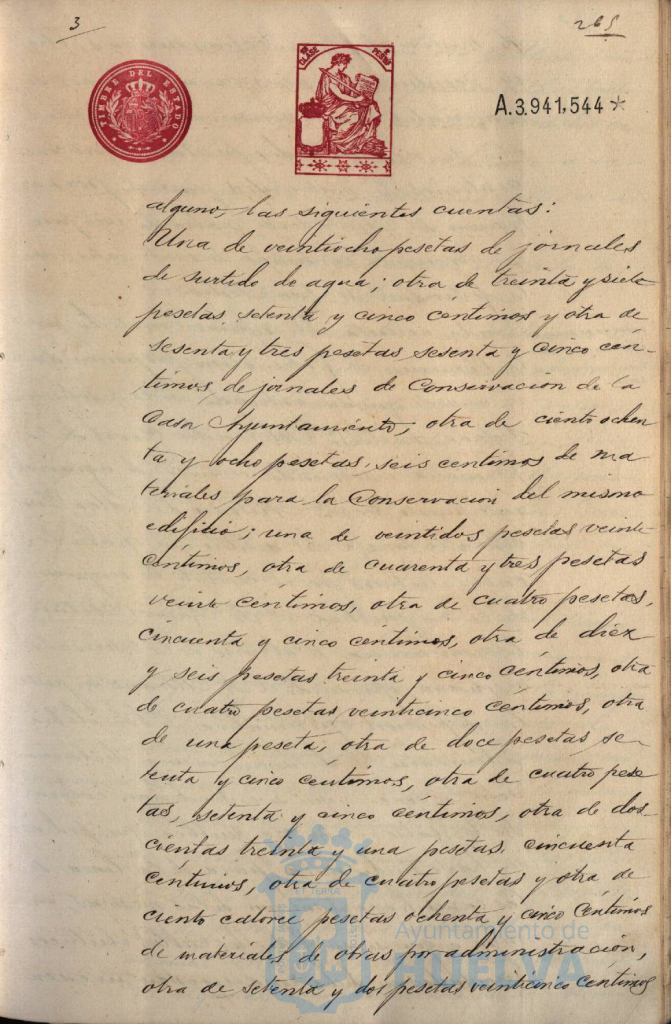 3
265
TIMBRE DEL ESTADO
CLASE
A.3.941,544*
alguno, las siguientes cuentas:
Una de veintiocho pesetas de jornales
de surtido de agua; otra de treinta y siete
pesetas, setenta y cinco céntimos y otra de
sesenta y tres pesetas sesenta y cinco cén-
timos, de jornales de Conservación de la
Casa Ayuntamiento; otra de ciento ochen
ta y ocho pesetas, seis centimos de ma
teriales para la Conservación del mismo
edificio; una de veintidos pesetas veinte
céntimos, otra de cuarenta y tres pesetas
veinte céntimos, otra de cuatro pesetas,
cincuenta y cinco céntimos, otra de diez
y seis pesetas treinta y cinco céntimos, otra
de cuatro pesetas veinticinco céntimos, otra
de una peseta, otra de doce pesetas se
tenta y cinco céntimos, otra de cuatro pese
tas, setenta y cinco céntimos, otra de dos-
cientas treinta y una pesetas, cincuenta
céntimos, otra de cuatro pesetas y otra de
ciento catorce pesetas ochenta y cinco céntimos
de materiales de obras por administración,
otra de setenta y dos pesetas veinticinco céntimos
Ayuntamiento de
HUELVA